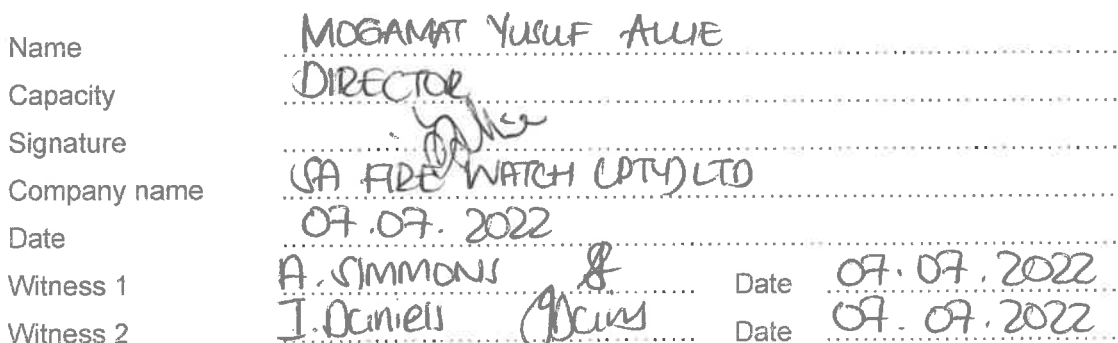 Name MOGAMAT YUSUF ALLIE
Capacity DIRECTOR
Signature
Company name SA FIRE WATCH (PTY) LTD
Date 07.07.2022
Witness 1 A. SIMMONS Date 07.07.2022
Witness 2 I. Daniels Date 07.07.2022